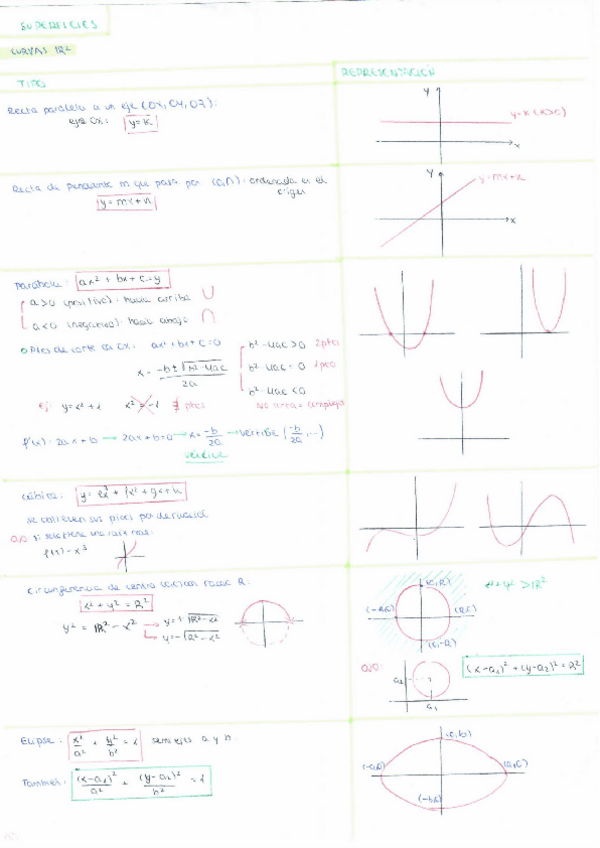 SUPERFICIES
CURVAS IR²
TIPO
REPRESENTACIÓN
Recta paralela a un eje (OX, OY, OZ):
eje OX: y=K
y=K (K>0)
Y
X
Recta de pendiente m que pasa por (0,n): ordenada en el origen
y=mx+n
Y
y=mx+n
X
Parábola: ax² + bx + c = y
a>0 (positivo): hacia arriba
a<0 (negativo): hacia abajo
Ptos de corte con OX: ax² + bx + c = 0
x = -b ± √b²-4ac / 2a
b²-4ac > 0 2ptos
b²-4ac = 0 1pto
b²-4ac < 0
Ej: y = x² + 1 x² = -1 ∄ ptos
f'(x): 2ax + b → 2ax+b=0 → x = -b/2a → vértice (-b/2a, ...)
vértice
Cúbica:
se obtienen sus picos por derivación
OJO
f(x) = x³
Circunferencia de centro radio R:
x² + y² = R²
y² = IR² - x² → y = + √IR²-x²
y = - √R²-x²
(0,R)
(-R,0)
(R,0)
(0,-R)
x²+y² > IR²
OJO:
a₂
a₁
(x-a₁)² + (y-a₂)² = R²
Elipse: x²/a² + y²/b² = 1 semiejes a y b.
También: (x-a₁)²/a² + (y-a₂)²/b² = 1
(0,b)
(-a,0)
(a,0)